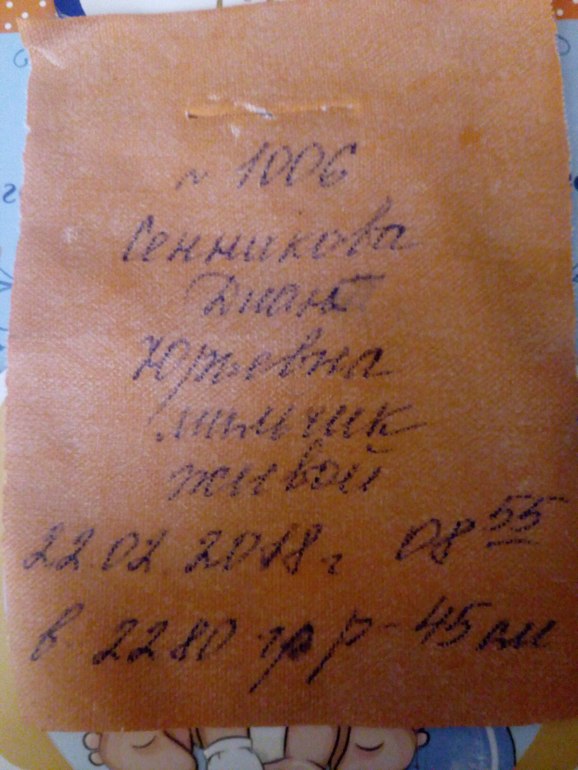 N 1006
Сенникова
Диана
Юрьевна
мальчик
живой
22 02 2018 г 08 55
в 2280 гр р - 45 см